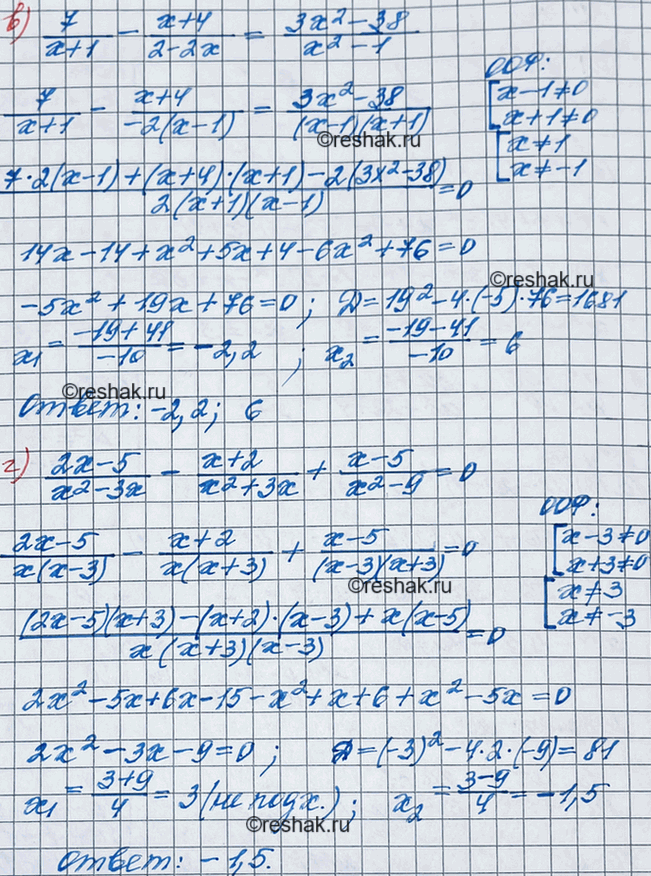 в) 7/(x+1) − (x+4)/(2−2x) = (3x²−38)/(x²−1)
ООФ:
7/(x+1) − (x+4)/(−2(x−1)) = (3x²−38)/((x−1)(x+1))
[x−1≠0
x+1≠0
[x≠1
x≠−1
(7·2(x−1)+(x+4)·(x+1)−2(3x²−38))/(2(x+1)(x−1)) =0
14x−14+x²+5x+4−6x²+76=0
©reshak.ru
−5x²+19x+76=0; D=19²−4·(−5)·76=1681
x₁ = (−19+41)/(−10) = −2,2 ; x₂ = (−19−41)/(−10) = 6
©reshak.ru
Ответ: −2,2; 6
г) (2x−5)/(x²−3x) − (x+2)/(x²+3x) + (x−5)/(x²−9) =0
ООФ:
(2x−5)/(x(x−3)) − (x+2)/(x(x+3)) + (x−5)/((x−3)(x+3)) =0
[x−3≠0
x+3≠0
[x≠3
x≠−3
©reshak.ru
((2x−5)(x+3)−(x+2)·(x−3)+x(x−5))/(x(x+3)(x−3)) =0
2x²−5x+6x−15−x²+x+6+x²−5x=0
2x²−3x−9=0; D=(−3)²−4·2·(−9)=81
x₁ = (3+9)/4 = 3 (не подх.); x₂ = (3−9)/4 = −1,5
©reshak.ru
Ответ: −1,5.